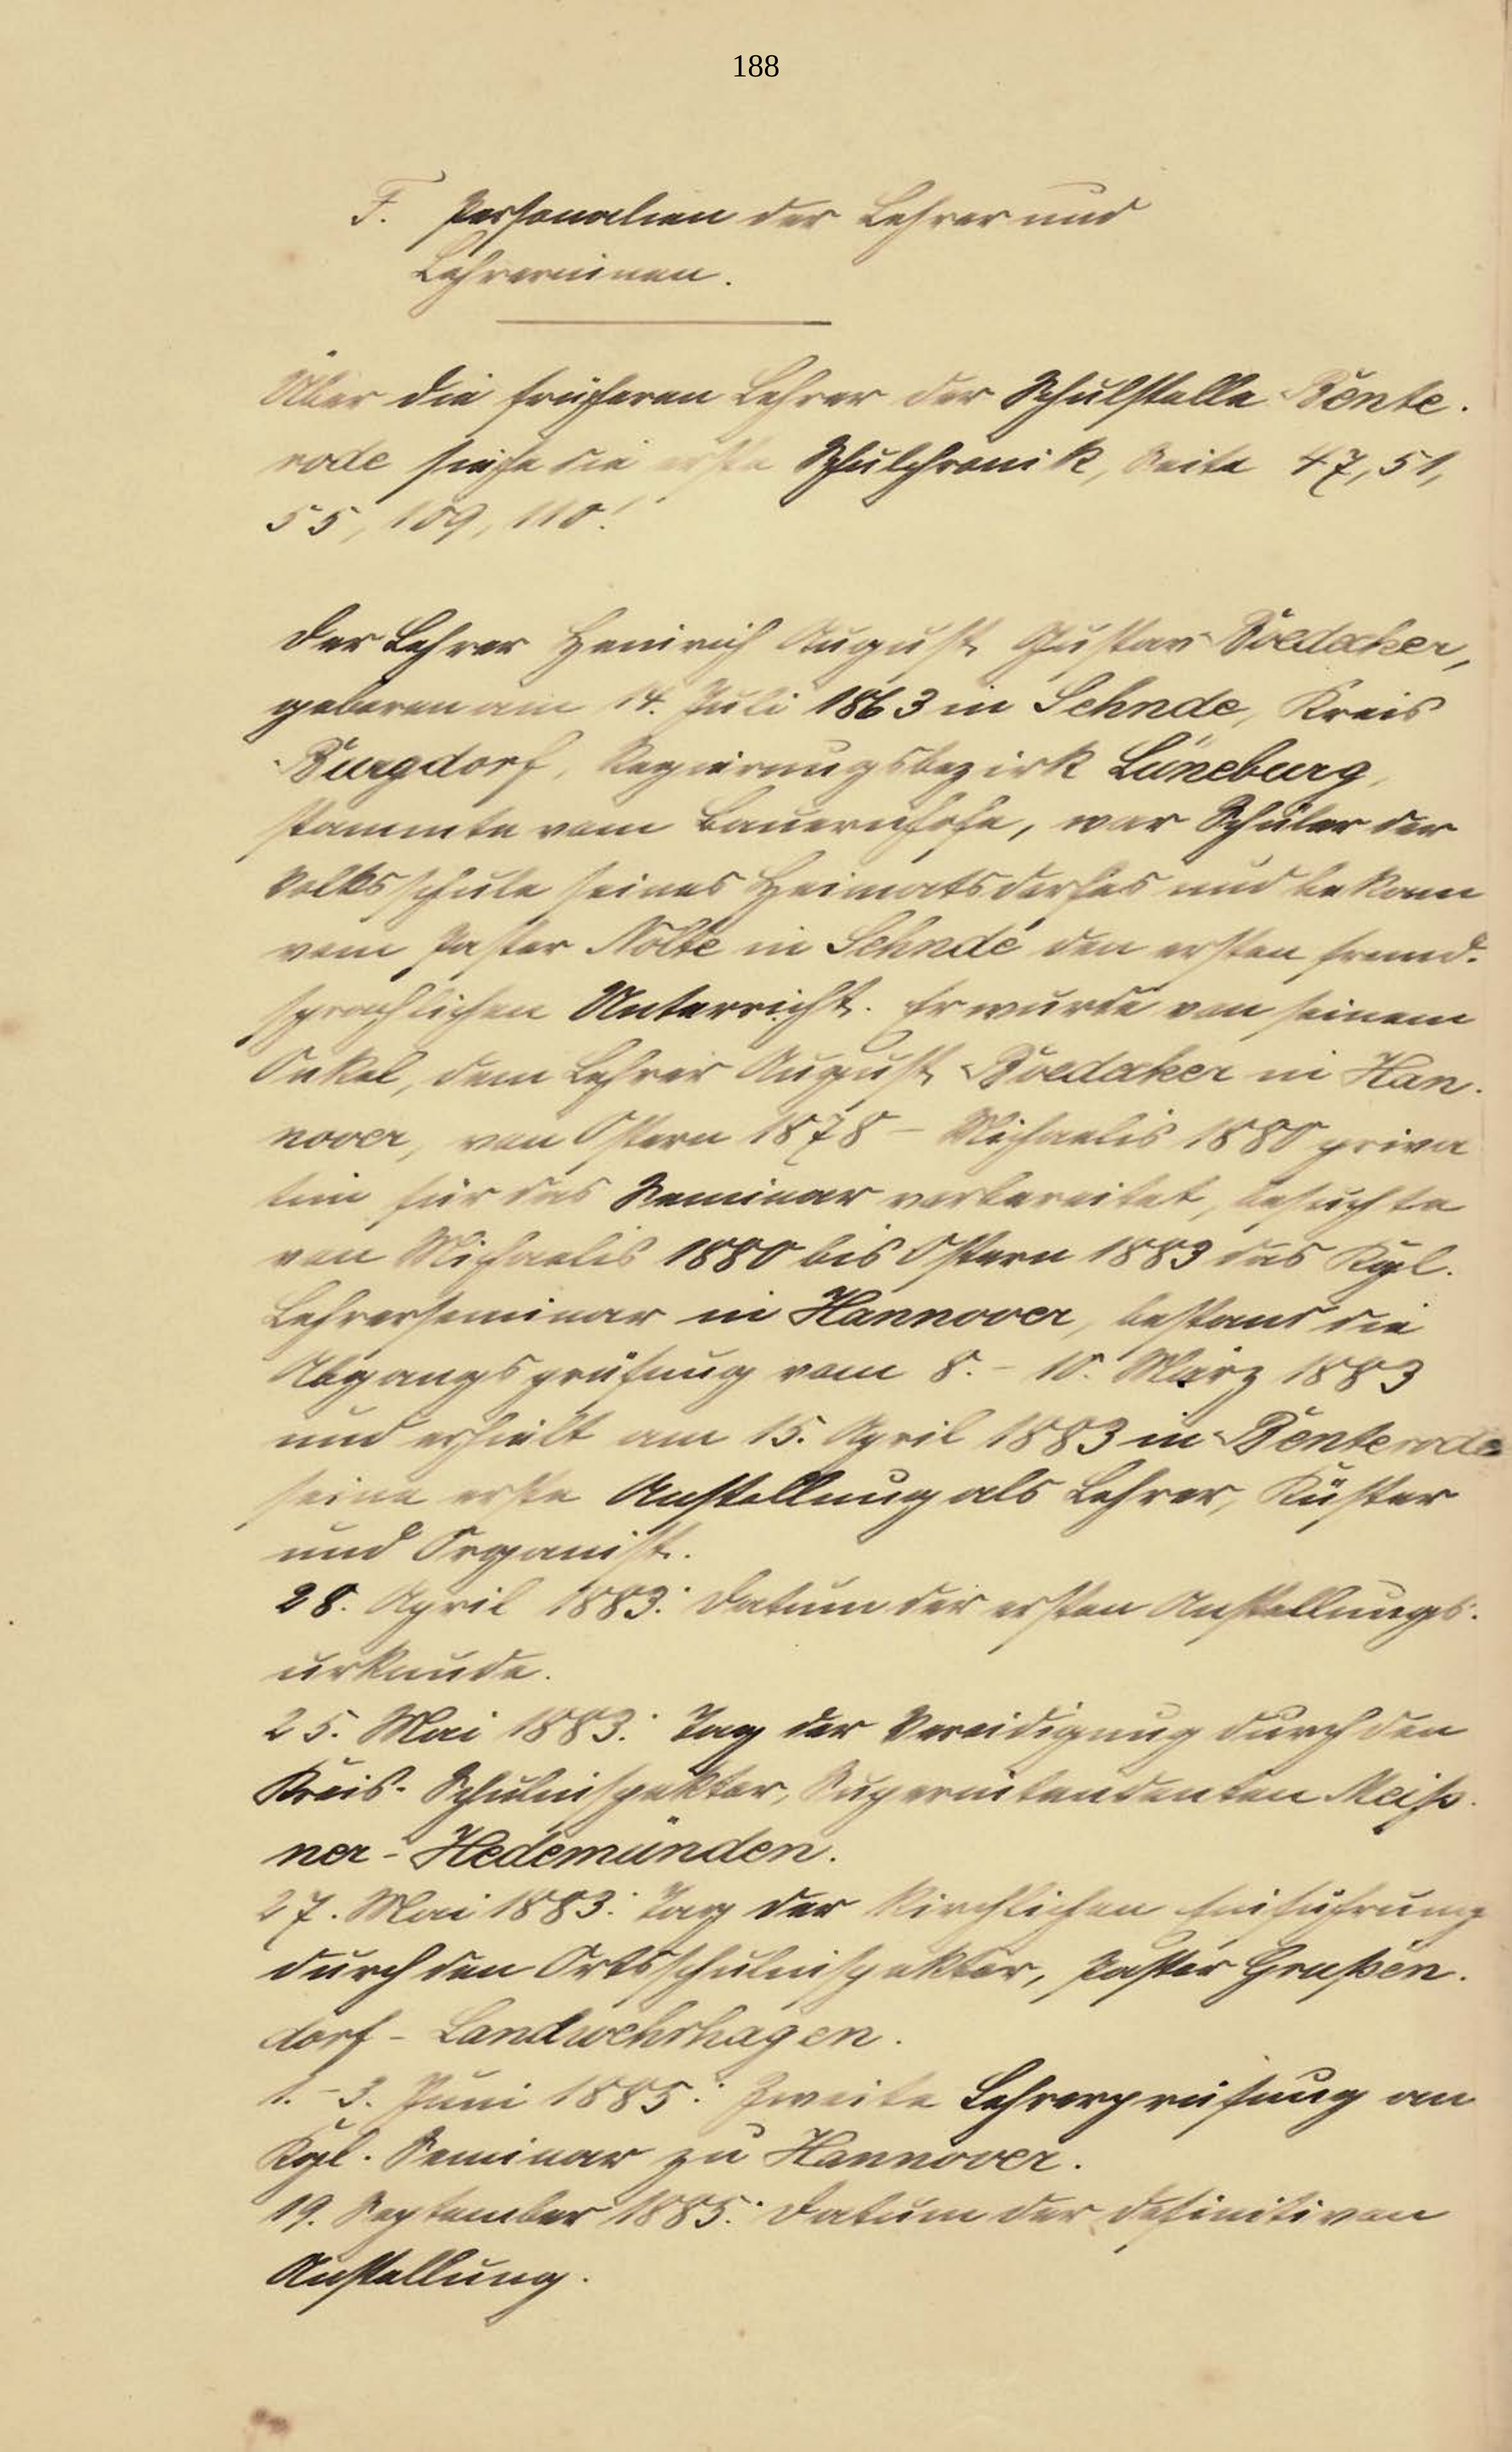 188
F. Personalien der Lehrer und
Lehrerinnen.
Über die früheren Lehrer der Schulstelle Bente-
rode siehe die erste Schulchronik, Seite 47, 51,
55, 109, 110!
Der Lehrer Heinrich August Gustav Boedecker,
geboren am 14. Juli 1863 in Sehnde, Kreis
Burgdorf, Regierungsbezirk Lüneburg,
stammte vom Bauernhofe, war Schüler der
Volksschule seines Heimatsdorfes und bekam
vom Pastor Nolte in Sehnde den ersten fremd-
sprachlichen Unterricht. Er wurde von seinem
Onkel, dem Lehrer August Boedecker in Han-
nover, von Ostern 1878 – Michaelis 1880 priva
tim für das Seminar vorbereitet, besuchte
von Michaelis 1880 bis Ostern 1883 das Kgl.
Lehrerseminar in Hannover, bestand die
Abgangsprüfung vom 8. – 10. März 1883
und erhielt am 15. April 1883 in Benterode
seine erste Anstellung als Lehrer, Küster
und Organist.
28. April 1883: Datum der ersten Anstellungs-
urkunde.
25. Mai 1883: Tag der Vereidigung durch den
Kreis-Schulinspektor, Superintendenten Meiß-
ner-Hedemünden.
27. Mai 1883: Tag der kirchlichen Einführung
durch den Ortsschulinspektor, Pastor Grußen-
dorf – Landwehrhagen.
1. – 3. Juni 1885: Zweite Lehrerprüfung am
Kgl. Seminar zu Hannover.
19. September 1885: Datum der definitiven
Anstellung.